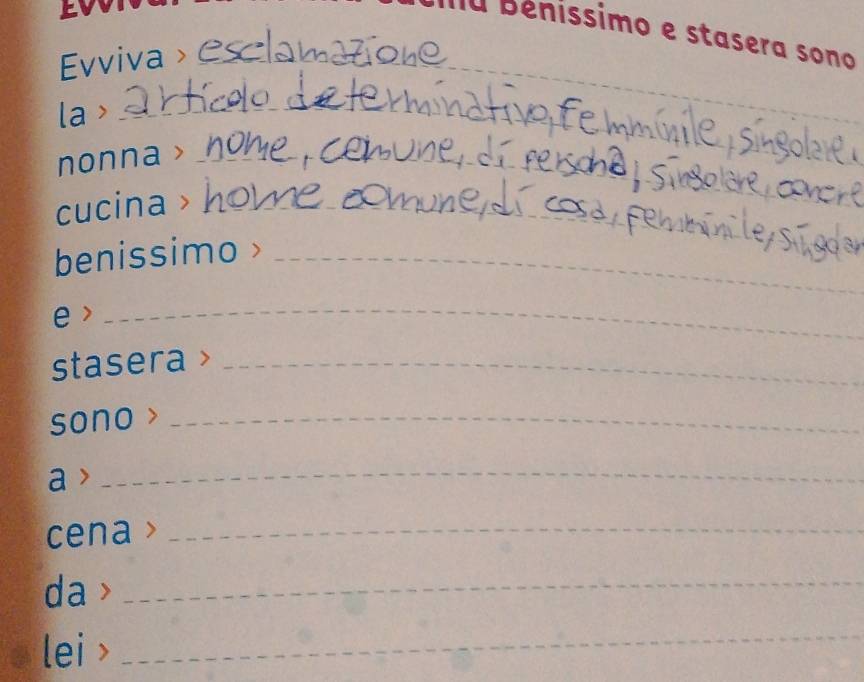 benissimo e stasera sono
Evviva > esclamazione
la > articolo determinativo, femminile, singolare.
nonna > nome, comune, di persona, singolare, concre
cucina > nome comune, di cosa, femminile, singolar
benissimo >
e >
stasera >
sono >
a >
cena >
da >
lei >